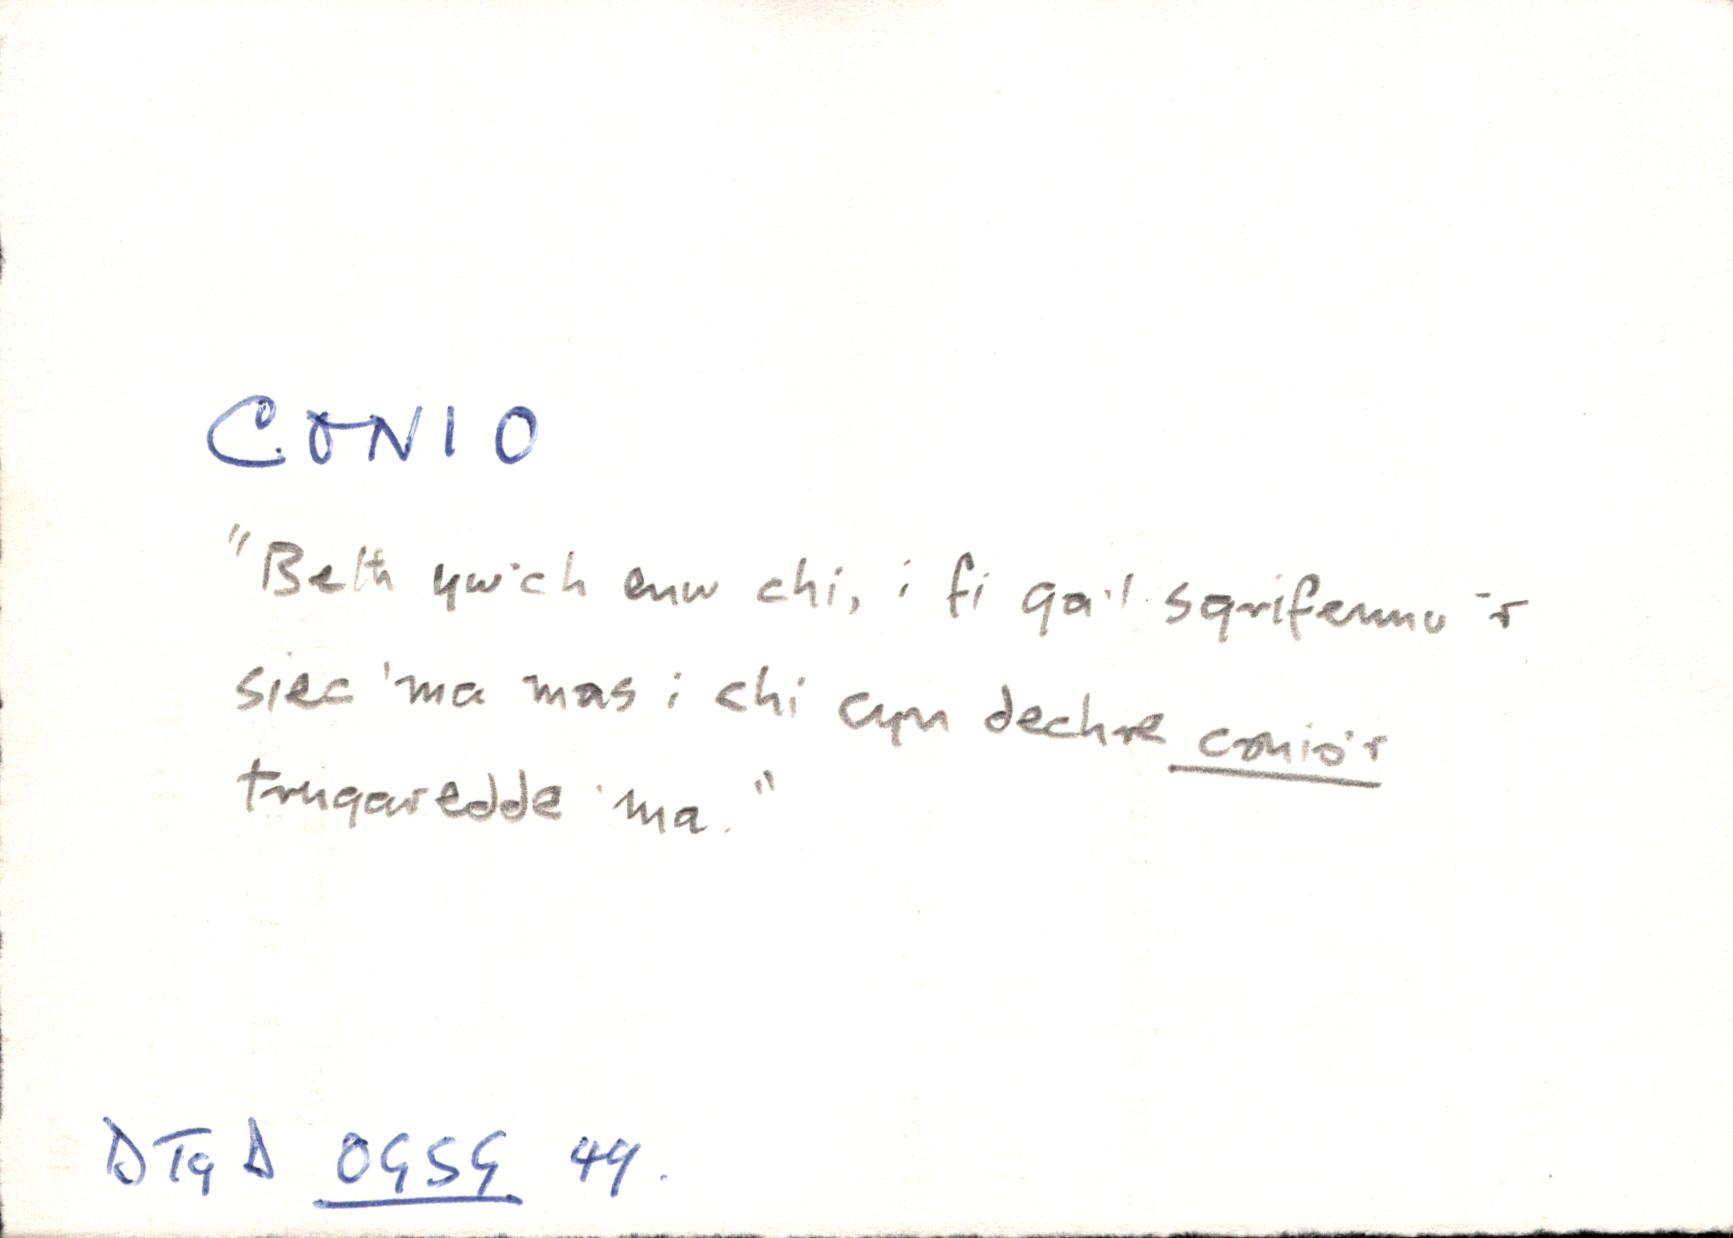 CONIO
"Beth yw'ch enw chi, i fi ga'l sgrifennu'r
siec 'ma mas i chi cyn dechre conio'r
trugaredde 'ma."
DTgD OGSG 44.